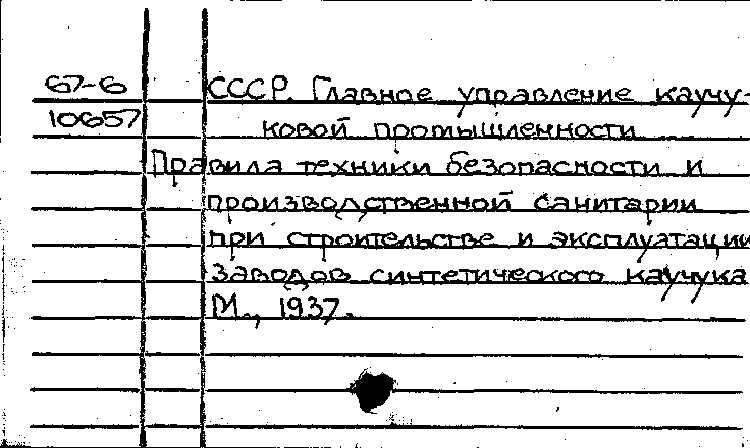 67-6
10657
СССР. Главное управление каучу-
ковой промышленности
Правила техники безопасности и
производственной санитарии
при строительстве и эксплуатации
заводов синтетического каучука
М., 1937.